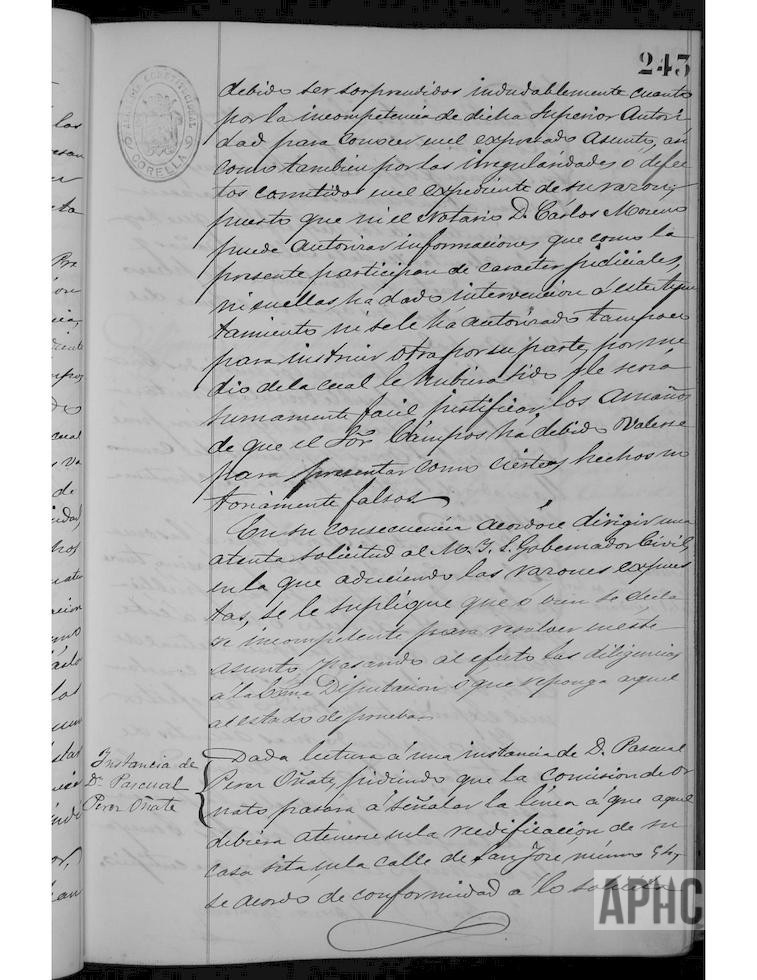 243
AYUNTAMIENTO CONSTITUCIONAL
CORELLA
debido ser sorprendidos indudablemente cuanto
por la incompetencia de dicha Superior Autori
dad para conocer en el expresado asunto, asi
como tambien por las irregularidades ó defec
tos cometidos en el expediente de su razon,
puesto que ni el Notario D. Cárlos Moreno
puede autorizar informaciones que como la
presente participan de caracter judicial,
ni en ellas ha dado intervencion á este Ayun
tamiento ni se le ha autorizado tampoco
para instruir otra por su parte, por me
dio de la cual le hubiera sido y le seria
sumamente facil justificar los amaños
de que el Sor. Campos ha debido valerse
para presentar como ciertos hechos no
toriamente falsos
En su consecuencia acordóse dirigir una
atenta solicitud al M. I. S. Gobernador Civil,
en la que aduciendo las razones expues
tas, se le suplique que ó bien se decla
re incompetente para resolver en este
asunto, pasando al efecto las diligencias
á la Exma Diputacion ó que reponga aquel
al estado de prueba.
Instancia de
Dn. Pascual
Perez Oñate
Dada lectura á una instancia de D. Pascual
Perez Oñate, pidiendo que la Comision de Or
nato pasara á señalar la linea á que aquel
debiera atenerse en la reedificacion de su
casa sita en la calle de San José, número
se acordó de conformidad á lo solicita
APHC